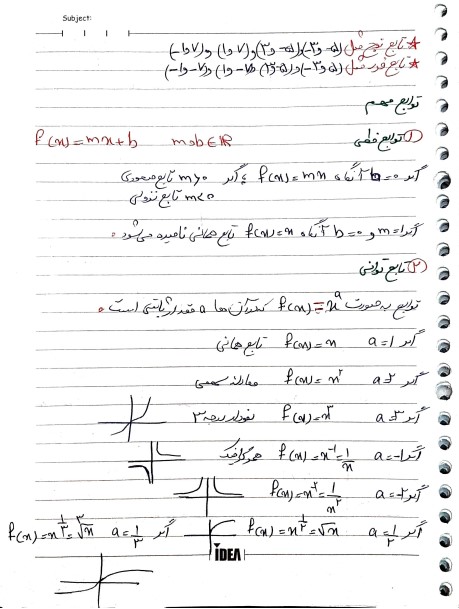 Subject:
* تابع زوج مثل (۵و۳-)و(۵و۳)و(۷و۱)و(۷و۱-)
* تابع فرد مثل (۵و۳-)و(۵-و۳)و(۷-و۱)و(۷-و۱-)
توابع مهم
① توابع خطی f(x)=mx+b m,b∈R
اگر b=0 آنگاه f(x)=mx و اگر m>0 تابع صعودی
m<0 تابع نزولی
اگر m=1 و b=0 آنگاه f(x)=x تابع همانی نامیده می‌شود.
② تابع توانی
توابع به صورت f(x)=xᵃ که در آن‌ها a مقدار ثابتی است.
اگر a=1 f(x)=x تابع همانی
اگر a=۲ f(x)=x^۲ معادله سهمی
اگر a=۳ f(x)=x^۳ نمودار درجه ۳
اگر a=-1 f(x)=x^-1=1/x هموگرافیک
اگر a=-۲ f(x)=x^-۲=1/x^۲
اگر a=1/۲ f(x)=x^1/۲=√x اگر a=1/۳ f(x)=x^1/۳=∛x
IDEA